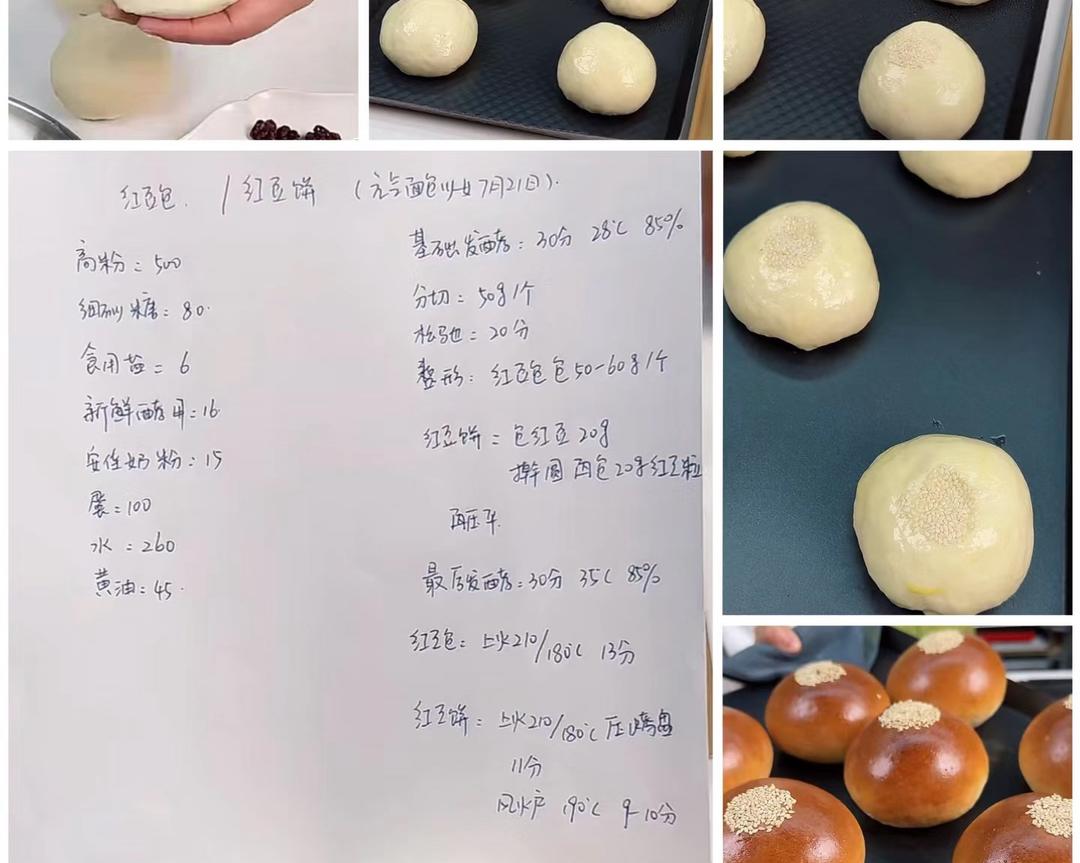 红豆包. / 红豆饼 (元气面包少女7月21日).
高粉: 500
细砂糖: 80.
食用盐: 6
新鲜酵母: 16.
安佳奶粉: 15
蛋: 100
水: 260
黄油: 45.
基础发酵: 30分 28℃ 85%
分切: 50g/个
松驰: 20分
整形: 红豆包包50-60g/个
红豆饼: 包红豆20g
擀圆 再包20g红豆粒
再压平.
最后发酵: 30分 35℃ 85%
红豆包: 上火210/180℃ 13分
红豆饼: 上火210/180℃ 压烤盘
11分
风炉 190℃ 9-10分